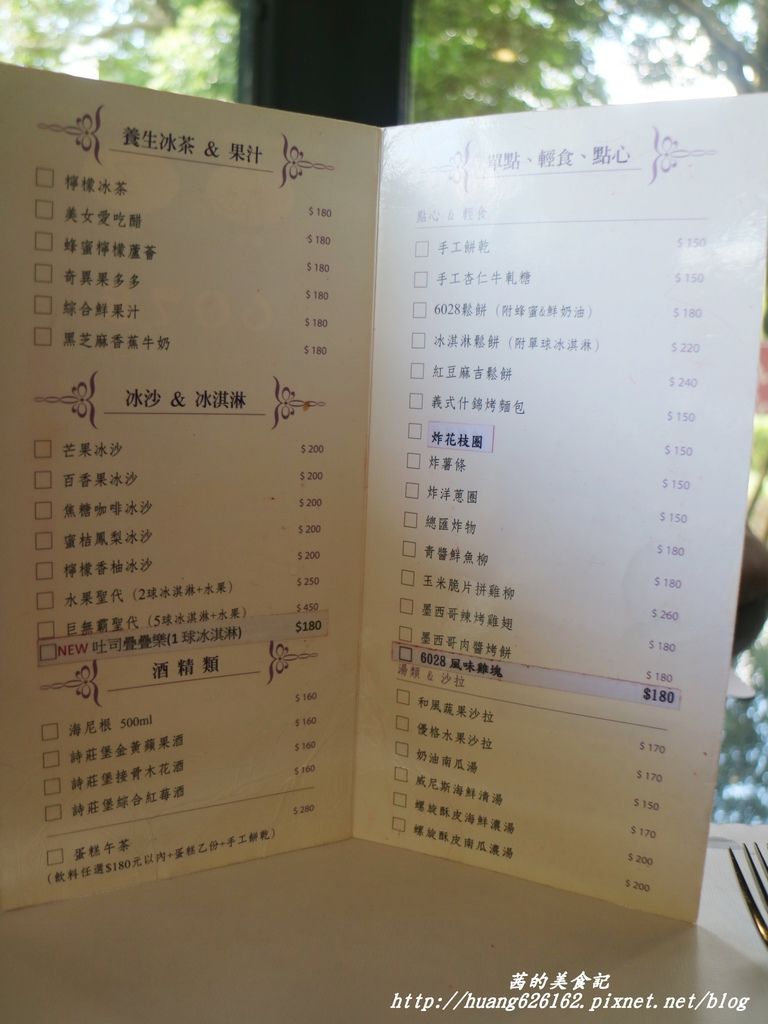 養生冰茶 & 果汁
檸檬冰茶 $180
美女愛吃醋 $180
蜂蜜檸檬蘆薈 $180
奇異果多多 $180
綜合鮮果汁 $180
黑芝麻香蕉牛奶 $180
冰沙 & 冰淇淋
芒果冰沙 $200
百香果冰沙 $200
焦糖咖啡冰沙 $200
蜜桔鳳梨冰沙 $200
檸檬香柚冰沙 $200
水果聖代 (2球冰淇淋+水果) $250
巨無霸聖代 (5球冰淇淋+水果) $450
NEW 吐司疊疊樂(1 球冰淇淋) $180
酒精類
海尼根 500ml $160
詩莊堡金黃蘋果酒 $160
詩莊堡接骨木花酒 $160
詩莊堡綜合紅莓酒 $160
蛋糕午茶 $280
(飲料任選$180元以內+蛋糕乙份+手工餅乾)
單點、輕食、點心
點心 & 輕食
手工餅乾 $150
手工杏仁牛軋糖 $150
6028鬆餅 (附蜂蜜&鮮奶油) $180
冰淇淋鬆餅 (附單球冰淇淋) $220
紅豆麻吉鬆餅 $240
義式什錦烤麵包 $150
炸花枝圈 $150
炸薯條 $150
炸洋蔥圈 $150
總匯炸物 $180
青醬鮮魚柳 $180
玉米脆片拼雞柳 $260
墨西哥辣烤雞翅 $180
墨西哥肉醬烤餅 $180
6028 風味雞塊 $180
湯類 & 沙拉
和風蔬果沙拉 $170
優格水果沙拉 $170
奶油南瓜湯 $150
威尼斯海鮮清湯 $170
螺旋酥皮海鮮濃湯 $200
螺旋酥皮南瓜濃湯 $200
茜的美食記
http://huang626162.pixnet.net/blog